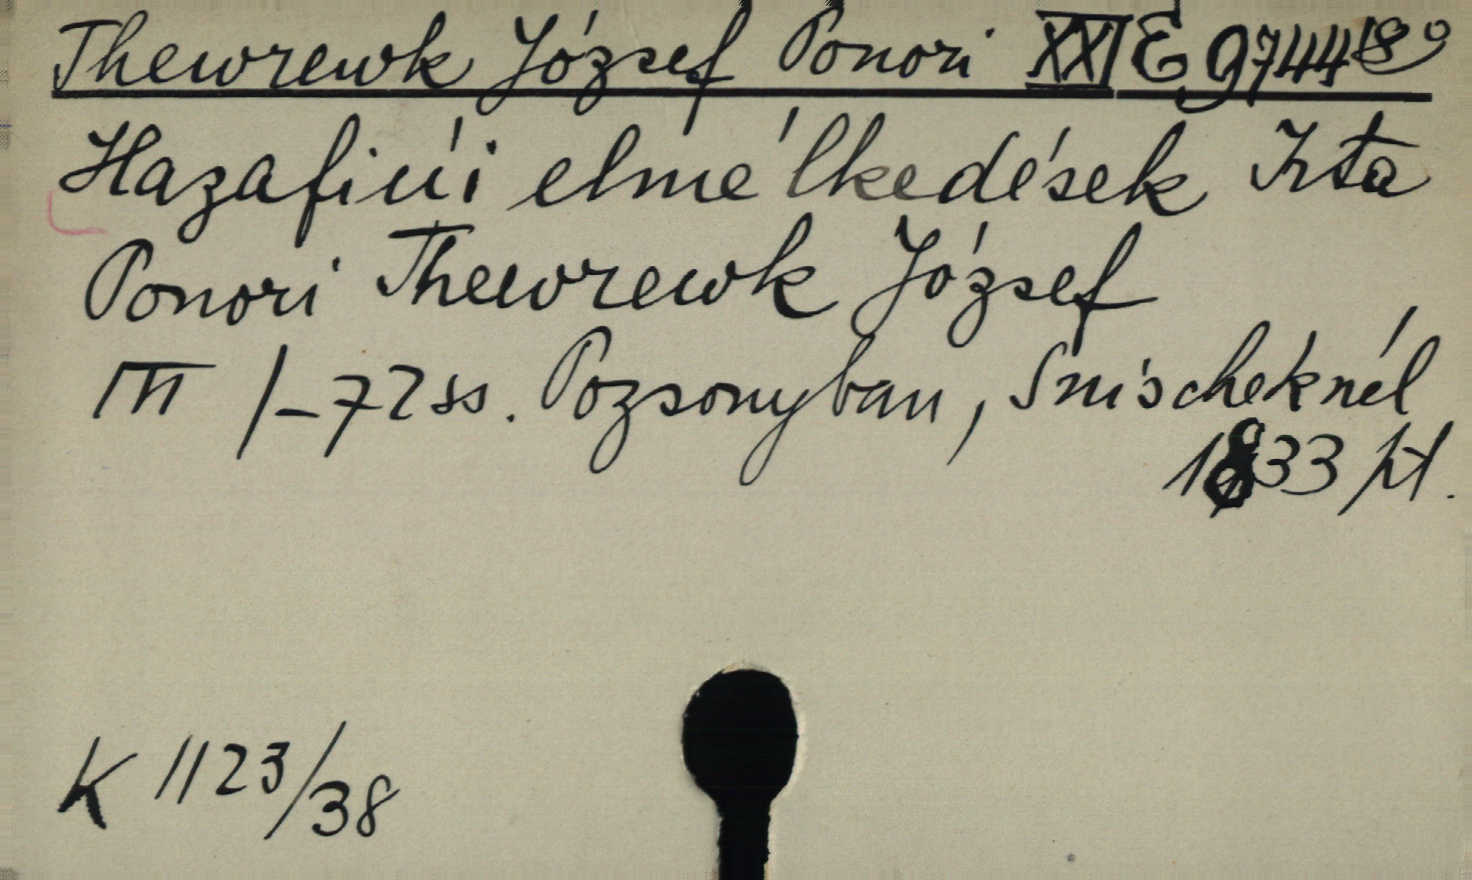 Thewrewk József Ponori XXI E 9744 8º
Hazafiúi elmélkedések Irta
Ponori Thewrewk József
III 1–72 ss. Pozsonyban, Snischeknél
1833 kt.
K 1123/38